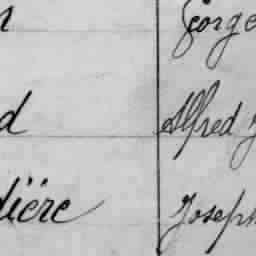 n Georges
d Alfred J
dière Joseph